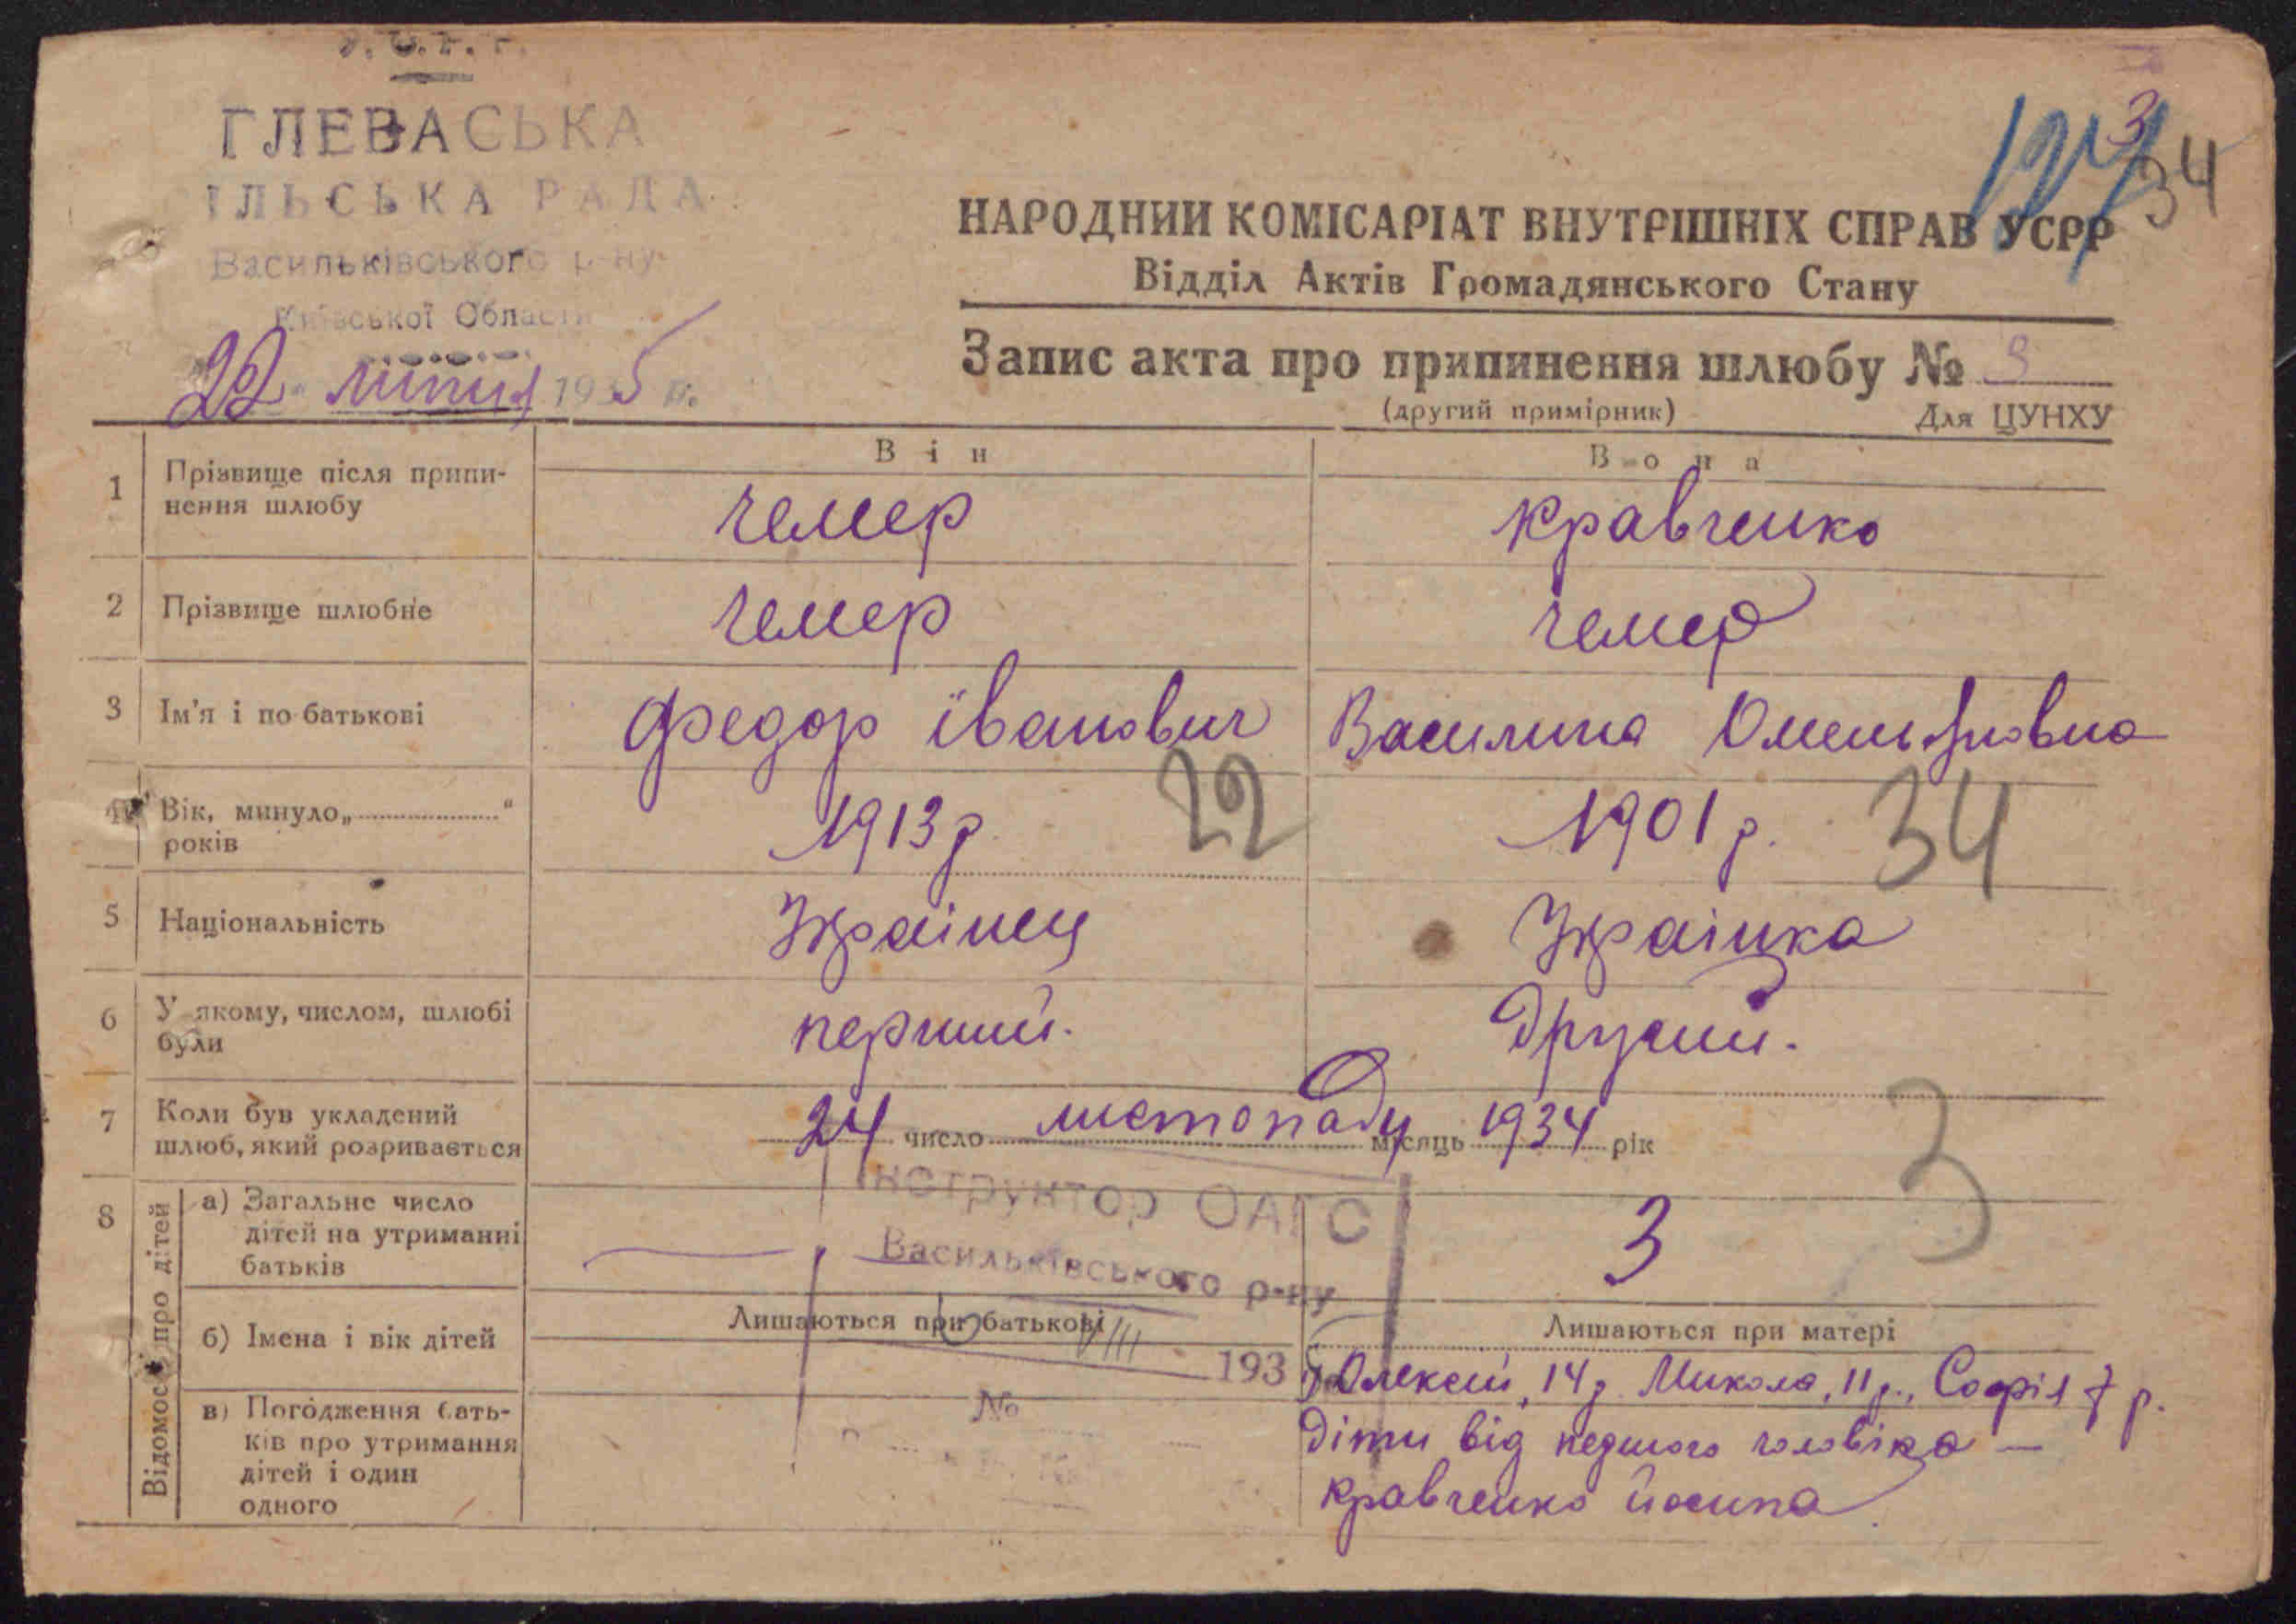 У.С.Р.Р.
ГЛЕВАСЬКА
ІЛЬСЬКА РАДА
Васильківського р-ну
Київської Области
22 липня 1935 р.
3
34
НАРОДНИЙ КОМІСАРІАТ ВНУТРІШНІХ СПРАВ УСРР
Відділ Актів Громадянського Стану
Запис акта про припинення шлюбу №
(другий примірник) Для ЦУНХУ
Він Вона
1 Прізвище після припи-
нення шлюбу
Чемер Кравченко
2 Прізвище шлюбне Чемер Чемер
3 Ім'я і по батькові Федор Іванович Василина Омельяновна
4 Вік, минуло „ “
років
1913 р. 22 1901 р. 34
5 Національність Українец Українка
6 У якому, числом, шлюбі
були
перший. Другий.
7 Коли був укладений
шлюб, який розривається
24 число листопаду місяць 1934 рік
8 Відомості про дітей
а) Загальне число
дітей на утриманні
батьків
— 3 3
Інструктор ОАГС
Васильківського р-ну
VIII 1935
№
б) Імена і вік дітей
Лишаються при батькові Лишаються при матері
Олексій, 14 р. Микола, 11 р., Софія 7 р.
в) Погодження бать-
ків про утримання
дітей і один
одного
Діти від першого чоловіка —
Кравченко Йосипа